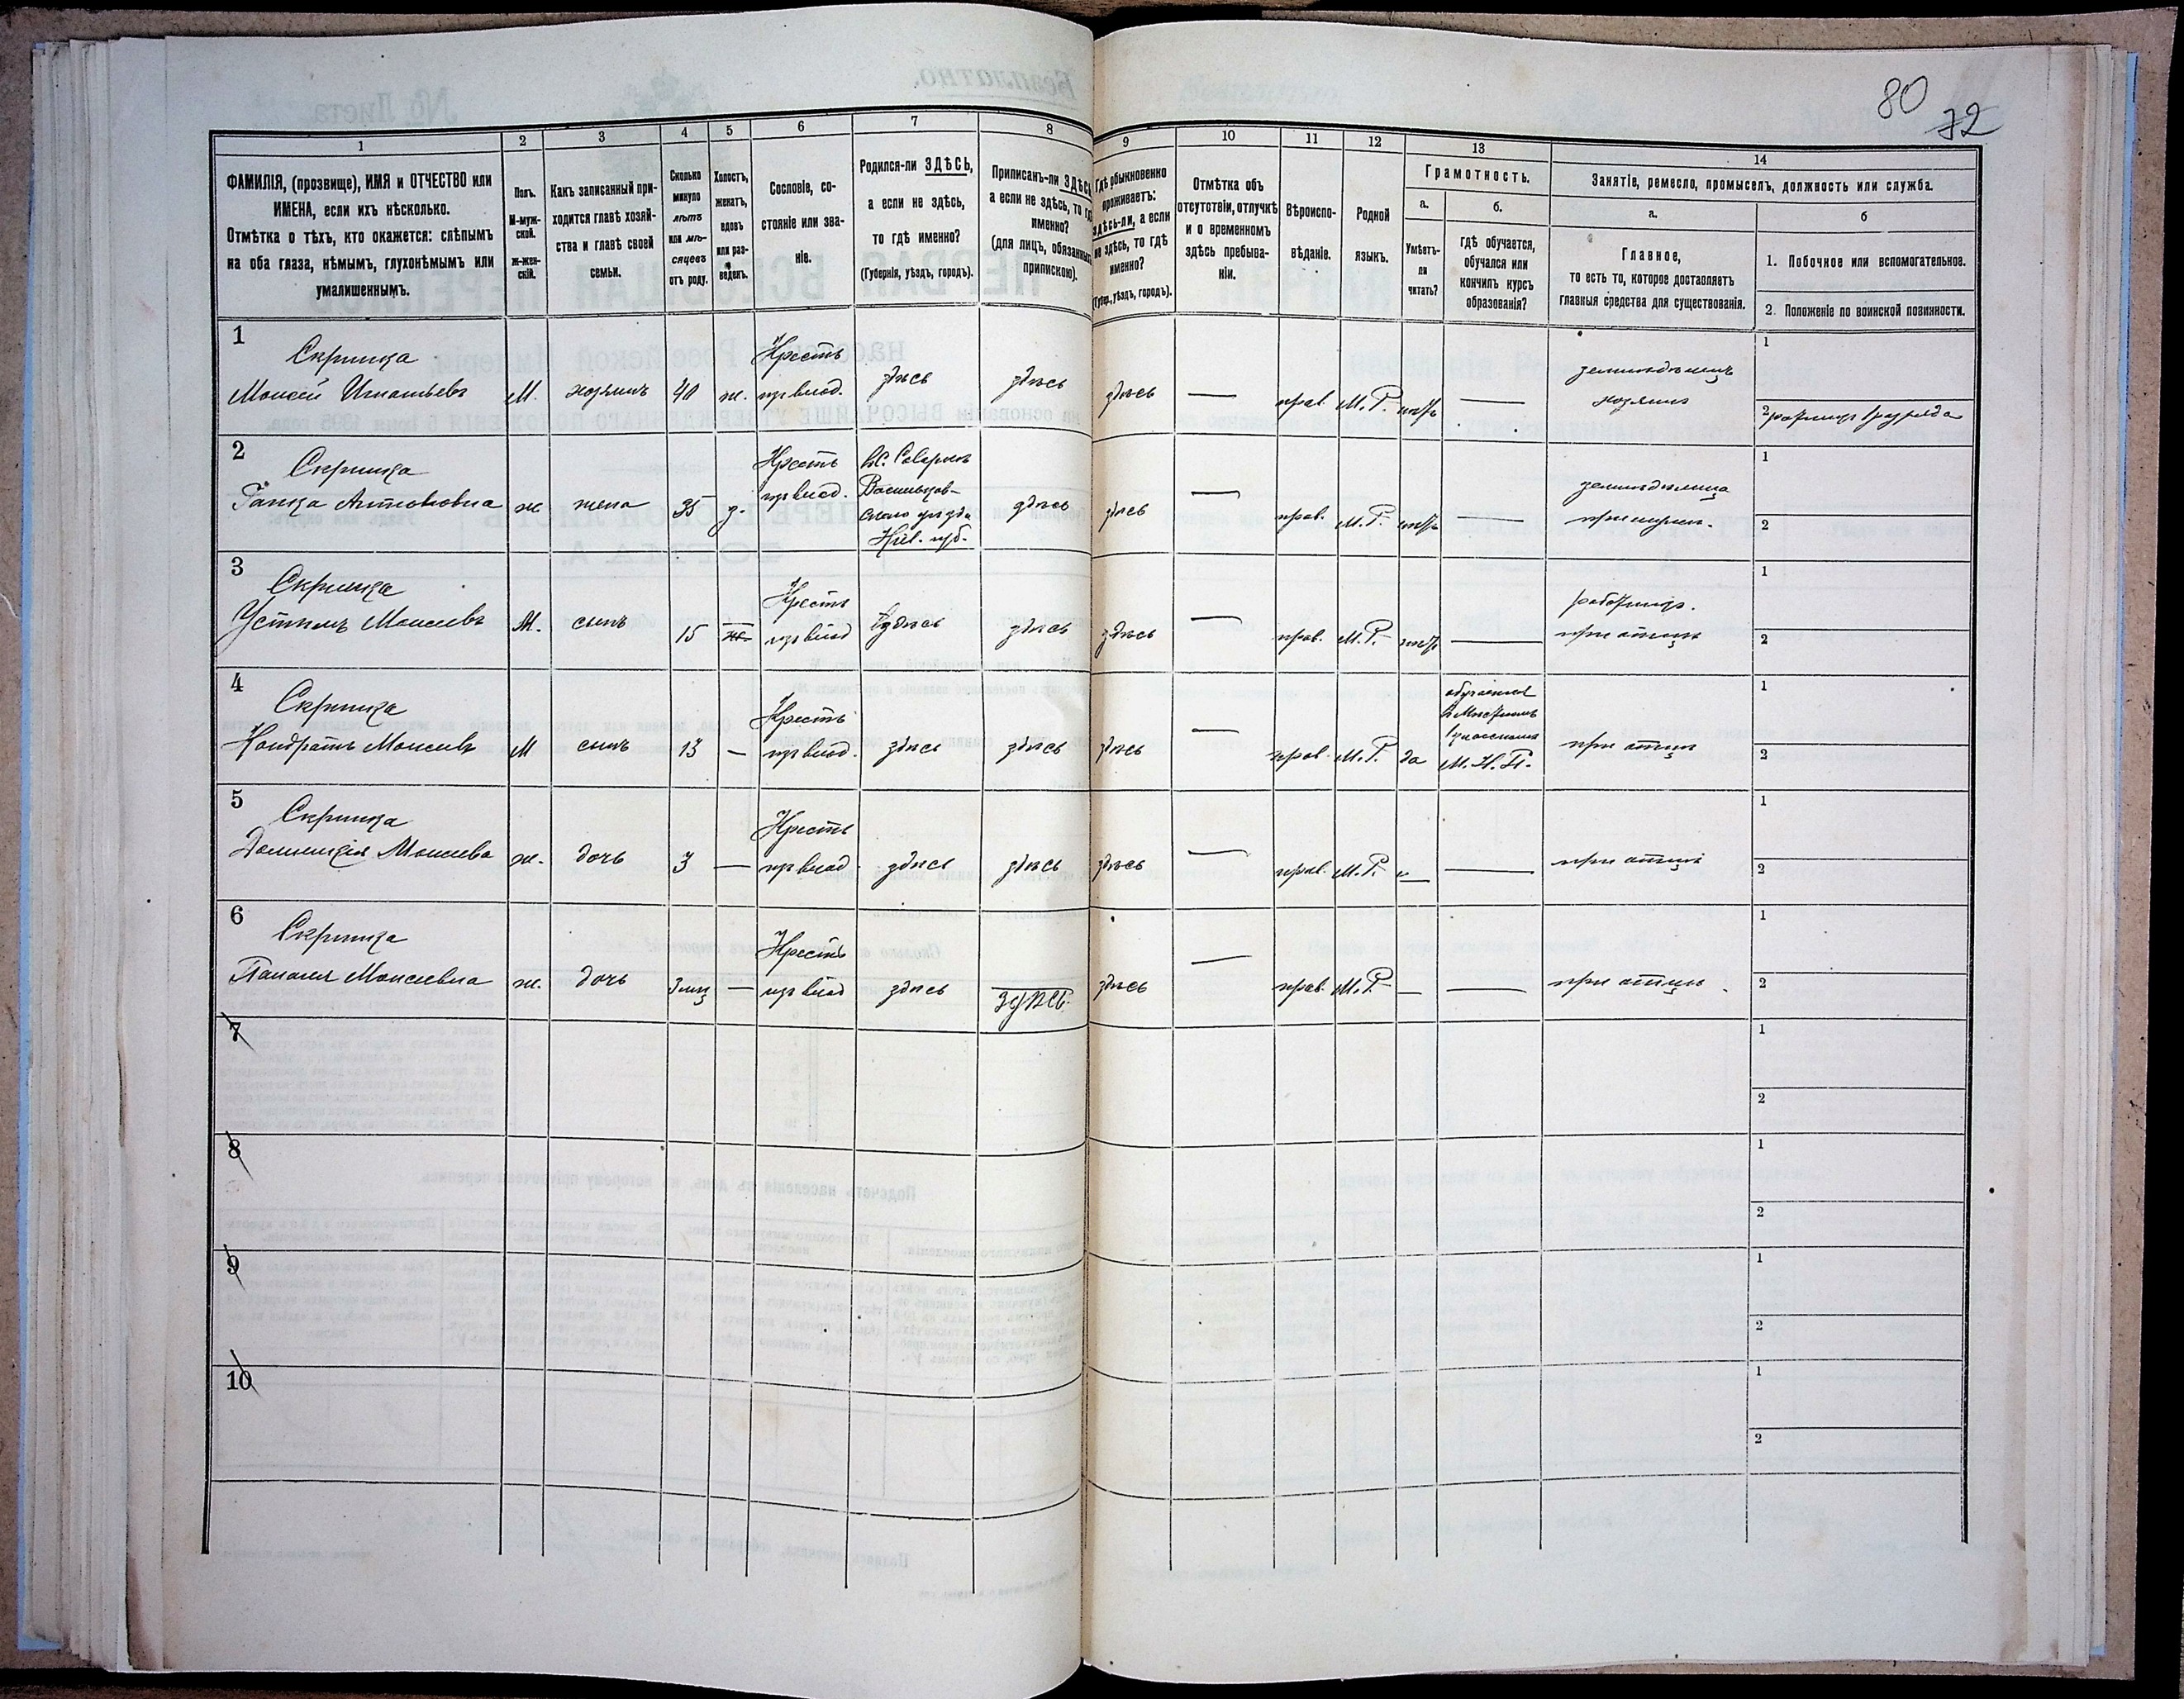 80
72
1 2 3 4 5 6 7 8 9 10 11 12 13 14
ФАМИЛІЯ, (прозвище), ИМЯ и ОТЧЕСТВО или
ИМЕНА, если ихъ нѣсколько.
Отмѣтка о тѣхъ, кто окажется: слѣпымъ
на оба глаза, нѣмымъ, глухонѣмымъ или
умалишеннымъ.
Полъ.
М-муж-
ской.
ж-жен-
скій.
Какъ записанный при-
ходится главѣ хозяй-
ства и главѣ своей
семьи.
Сколько
минуло
лѣтъ
или мѣ-
сяцевъ
отъ роду.
Холостъ,
женатъ,
вдовъ
или раз-
веденъ.
Сословіе, со-
стояніе или зва-
ніе.
Родился-ли ЗДѢСЬ,
а если не здѣсь,
то гдѣ именно?
(Губернія, уѣздъ, городъ).
Приписанъ-ли ЗДѢСЬ,
а если не здѣсь, то гдѣ
именно?
(для лицъ, обязанныхъ
припискою).
Гдѣ обыкновенно
проживаетъ:
здѣсь-ли, а если
не здѣсь, то гдѣ
именно?
(Губер., уѣздъ, городъ).
Отмѣтка объ
отсутствіи, отлучкѣ
и о временномъ
здѣсь пребыва-
ніи.
Вѣроиспо-
вѣданіе.
Родной
языкъ.
Грамотность.
а.
Умѣетъ-
ли
читать?
б.
Гдѣ обучается,
обучался или
кончилъ курсъ
образованія?
Занятіе, ремесло, промыселъ, должность или служба.
а.
Главное,
то есть то, которое доставляетъ
главныя средства для существованія.
б
1. Побочное или вспомогательное.
2. Положеніе по воинской повинности.
1
Скрипка
Моисей Игнатьевъ
М.
хозяинъ
40
ж.
Крестъ
изъ влад.
здѣсь
здѣсь
здѣсь
—
прав.
М. Р.
нѣтъ
—
земледѣлецъ
хозяинъ
1
2 ратникъ 1 разряда
2
Скрипка
Ганка Антоновна
ж
жена
35
з.
Крестъ
изъ влад.
Васильков-
скаго уѣзда
Кіев. губ.
здѣсь
здѣсь
—
прав.
М. Р.
нѣтъ
—
земледѣлица
при мужѣ.
1
2
3
Скрипка
Устимъ Моисеевъ
М.
сынъ
15
Крестъ
изъ влад
здѣсь
здѣсь
здѣсь
—
прав.
М. Р.
нѣтъ
—
работникъ.
при отцѣ
1
2
4
Скрипка
Кондратъ Моисеевъ
М
сынъ
13
—
Крестъ
изъ влад.
здѣсь
здѣсь
здѣсь
—
прав.
М. Р.
да
обучается
въ Мѣстномъ
1 классномъ
М. Н. П.
при отцѣ
1
2
5
Скрипка
Доминикія Моисеева
ж.
дочь
3
—
Крестъ
изъ влад.
здѣсь
здѣсь
здѣсь
—
прав.
М. Р.
—
—
при отцѣ
1
2
6
Скрипка
Палагея Моисеевна
ж.
дочь
3 мѣц
—
Крестъ
изъ влад
здѣсь
здѣсь.
здѣсь
—
прав.
М. Р.
—
—
при отцѣ
1
2
7
1
2
8
1
2
9
1
2
10
1
2